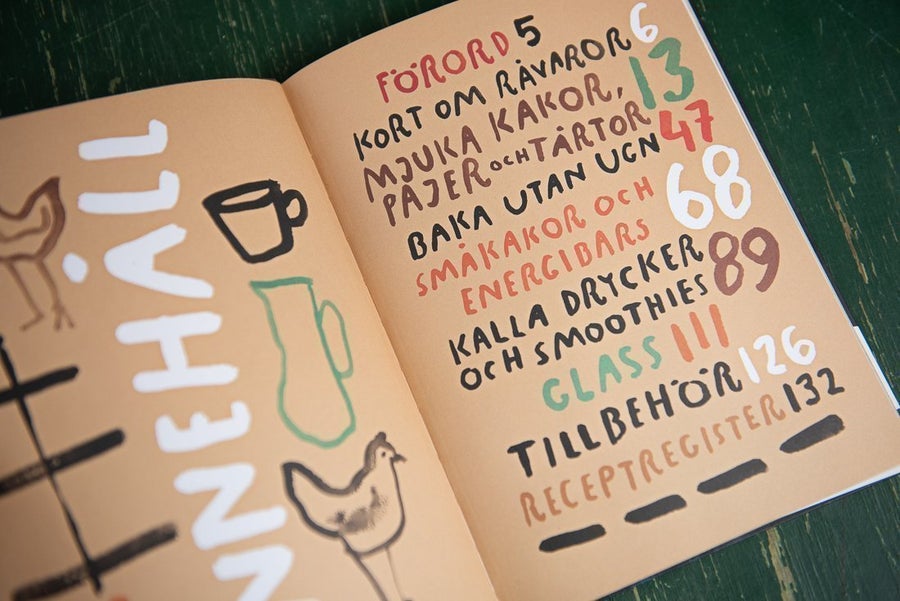 NNEHÅLL
FÖRORD 5
KORT OM RÅVAROR 6
MJUKA KAKOR, 13
PAJER OCH TÅRTOR
BAKA UTAN UGN 47
SMÅKAKOR OCH 68
ENERGIBARS
KALLA DRYCKER 89
OCH SMOOTHIES
GLASS 111
TILLBEHÖR 126
RECEPTREGISTER 132